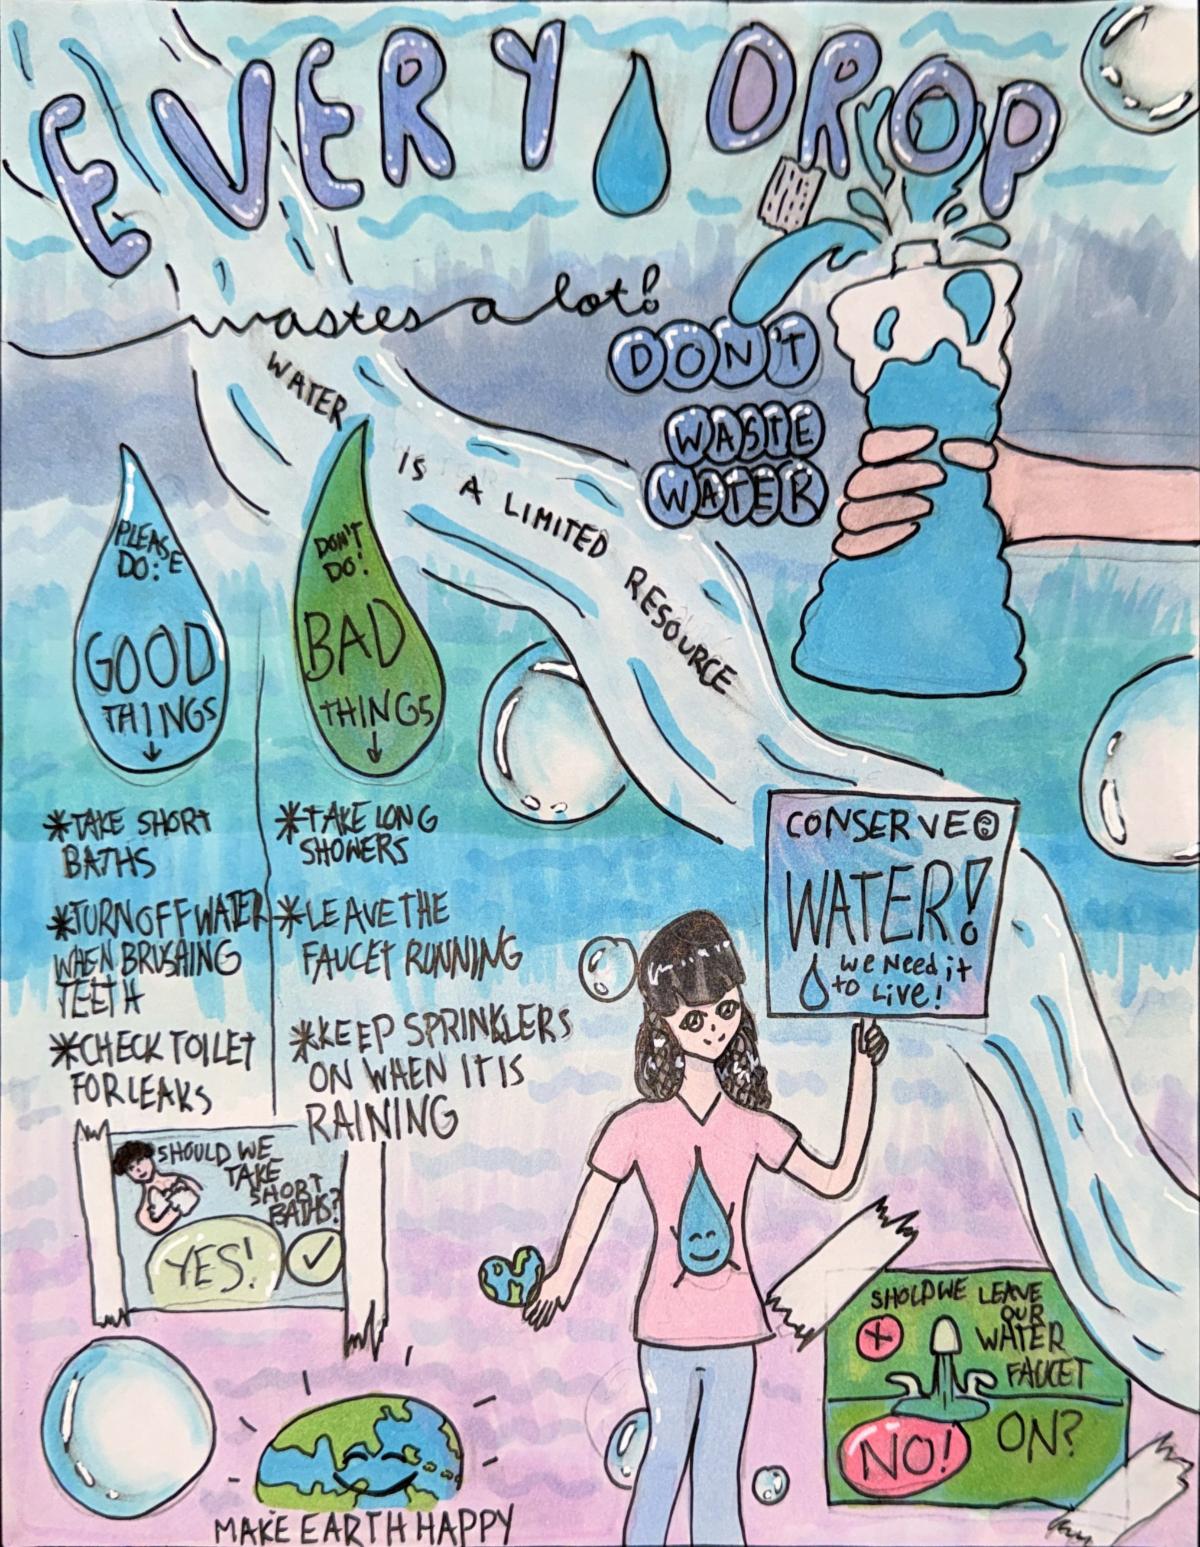 EVERY DROP
wastes a lot!
DON'T
WASTE
WATER
WATER IS A LIMITED RESOURCE
PLEASE
DO:
GOOD
THINGS
DON'T
DO!
BAD
THINGS
*TAKE SHORT
BATHS
*TURN OFF WATER
WHEN BRUSHING
TEETH
*CHECK TOILET
FOR LEAKS
*TAKE LONG
SHOWERS
*LEAVE THE
FAUCET RUNNING
*KEEP SPRINKLERS
ON WHEN IT IS
RAINING
CONSERVE
WATER!
we Need it
to Live!
SHOULD WE
TAKE
SHORT
BATHS?
YES!
SHOLD WE LEAVE
OUR
WATER
FAUCET
ON?
NO!
MAKE EARTH HAPPY